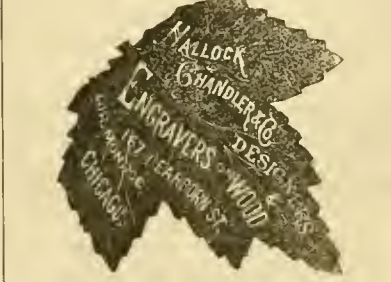 HALLOCK
CHANDLER & CO.
DESIGNERS
&
ENGRAVERS ON WOOD
167 DEARBORN ST.
COR. MONROE
CHICAGO.